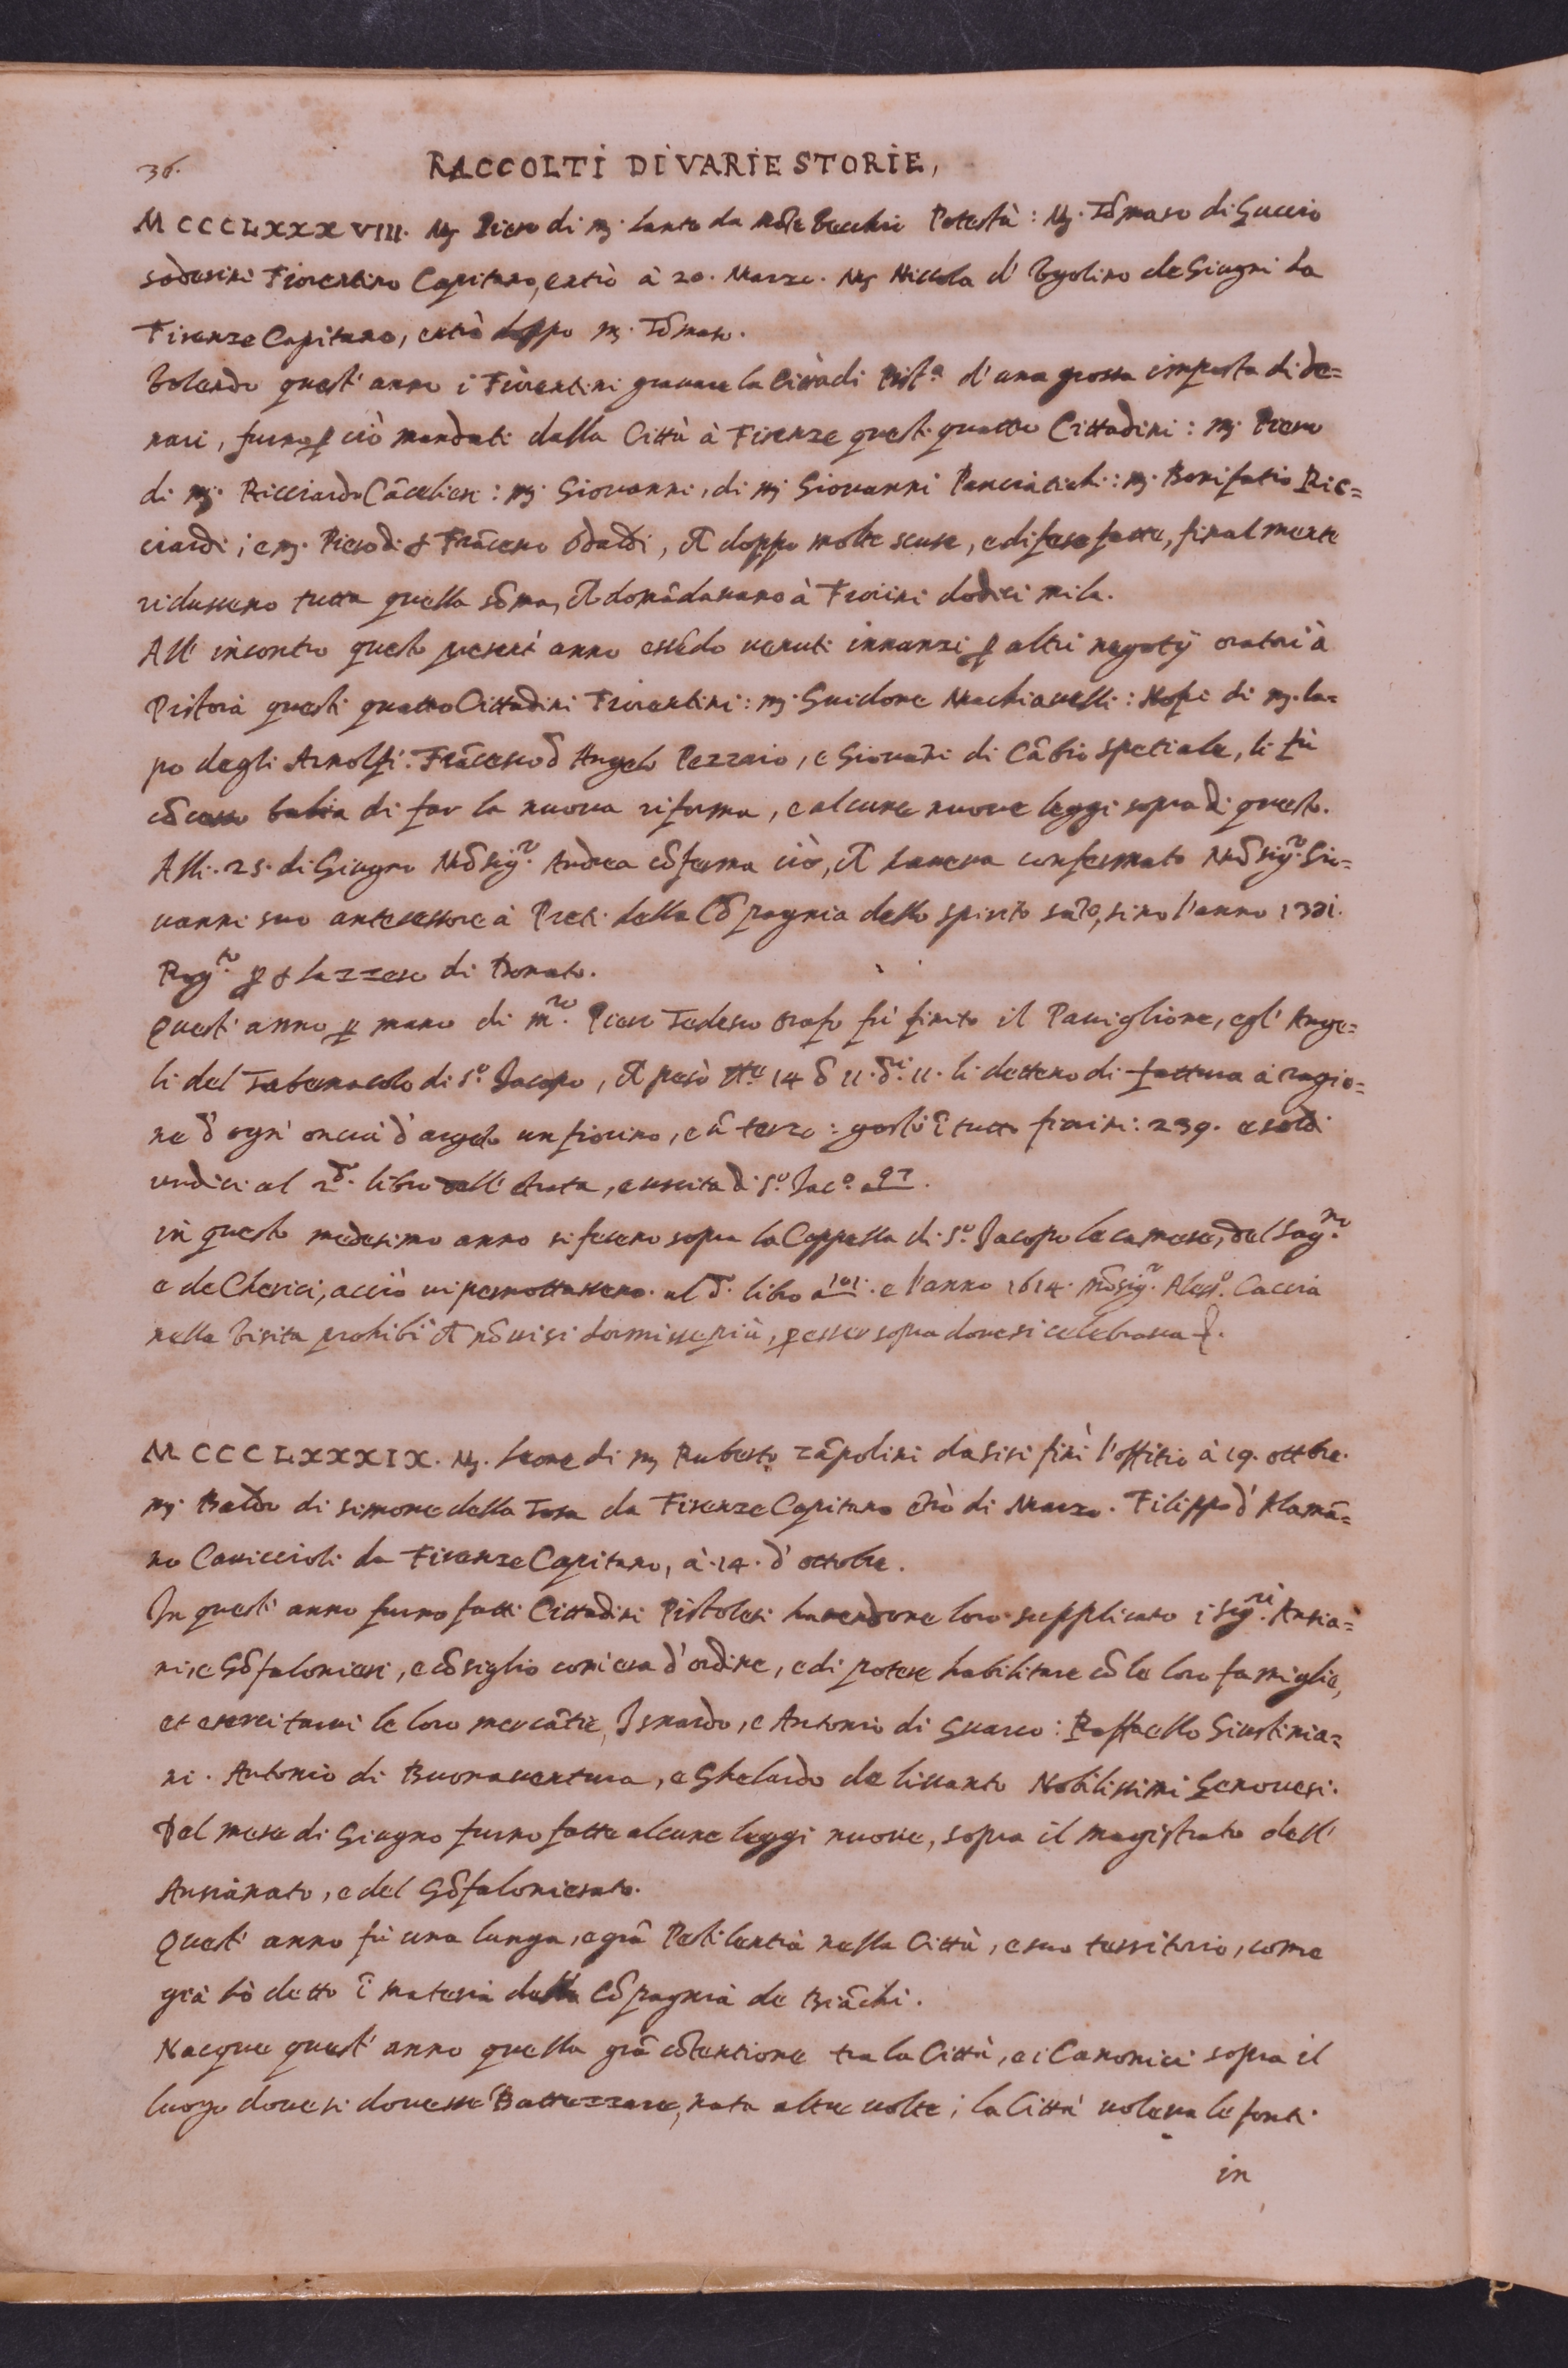 36.
RACCOLTI DI VARIE STORIE,
MCCCLXXXVIII. Mſ Piero di mſ. Lante da Mõte Vecchio Potestà: Mſ. Tõmaso di Guccio
sõderini Fiorentino Capitano, entrò à 20. Marzo. Mſ Niccola d' Vgolino de Giugni da
Firenze Capitano, entrò doppo mſ. Tõmaso.
Volendo quest' anno i Fiorentini gravare la Città di Pist.ª d' una grossa imposta di de=
nari, furno p ciò mandati dalla Città à Firenze questi quattro Cittadini: mſ. Piero
di mſ. Ricciardo Cãcelieri: mſ. Giovanni, di mſ Giovanni Panciatichi: mſ. Bonifatio Ric=
ciardi; e mſ. Piero di s Frãcesco Odaldi, ch doppo molte scuse, e difese fatte, finalmente
ridussero tutta quella sõma, ch domãdavano à Fiorini dodici mila.
All' incontro questo present' anno essẽdo venuti innanzi p altri negotij oratori à
Pistoia questi quattro Cittadini Fiorentini: mſ. Guidone Machiavelli: Nofri di mſ. La=
po degli Arnolfi: Frãcesco d Angelo Pezzaio, e Giovãni di Cãbio spetiale, li fù
cõcesso balia di far la nuova riforma, e alcune nuove leggi sopra di questo.
Alli. 25. di Giugno Mõsig.r Andrea cõferma ciò, ch haveva confermato Mõsig.r Gio=
vanni suo antecessore à Preti della Cõpagnia dello spirito sãto, sino l'anno 1331.
Rog.to p s Lazzero di Donato.
Quest' anno p mano di m.ro Piero Tedesco Orafo fù finito il Paviglione, e gl' Ange=
li del Tabernacolo di S.o Jacopo, ch pesò 14 11. 11. li dettero di fattura à ragio=
ne d' ogni oncia d' argẽto un fiorino, e ũ terzo: gostò ĩ tutto fiorini: 239. e soldi
undici al 2.do libro dell' ẽtrata, e uscita di S.o Jac.o a 97.
in questo medesimo anno si fecero sopra la Cappella di S.o Jacopo le camere, del Sag.no
e de Cherici, acciò vi pernottassero. al d. libro a 101. e l'anno 1614. Mõsig.r Aless.o Caccia
nella Visita prohibì ch nõ vi si dormisse più, p esser sopra dove si celebrava.
MCCCLXXXIX. Mſ. Leone di mſ Ruberto Zãpolini dasisi finì l'offitio à 19. ottbre.
mſ. Baldo di simone della Tosa da Firenze Capitano ẽtrò di Marzo. Filippo d' Alamã=
no Caviccioli da Firenze Capitano, à 14. d' ottobre.
In quest' anno furno fatti Cittadini Pistolesi havendone loro supplicato i sig.ri Ansia=
ni, e Gõfalonieri, e cõsiglio com'era d' ordine, e di potere habilitare cõ le loro famiglie,
et esercitarvi le loro mercãtie, Isnardo, e Antonio di Guarco: Raffaello Giustinia=
ni. Antonio di Buonaventura, e Gherardo de lissanto Nobilissimi Genovesi.
Del mese di Giugno furno fatte alcune leggi nuove, sopra il magistrato dell'
Ansianato, e del Gõfalonierato.
Quest' anno fù una lunga, e grã Pestilentia nella Città, e suo territorio, come
già hò detto ĩ materia della Cõpagnia de Biãchi.
Nacque quest' anno quella grã cõtentione tra la Città, e i Canonici sopra il
luogo dove si dovesse Battezzare, nata altre volte; la Città voleva le fonti
in